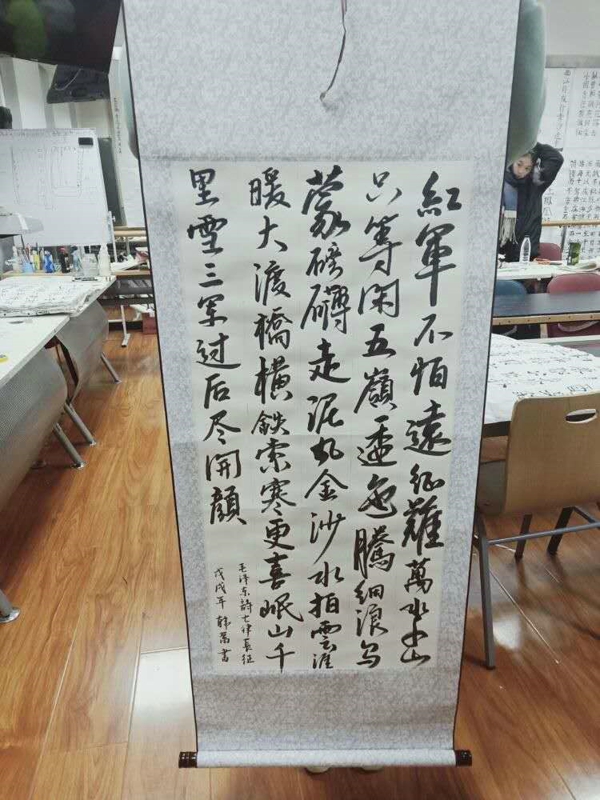 紅軍不怕遠征難萬水千山
只等闲五嶺逶迤騰細浪烏
蒙磅礴走泥丸金沙水拍雲涯
暖大渡橋横鉄索寒更喜岷山千
里雪三军过后尽開顔
毛泽东詩七律長征
戊戌年 韩 書